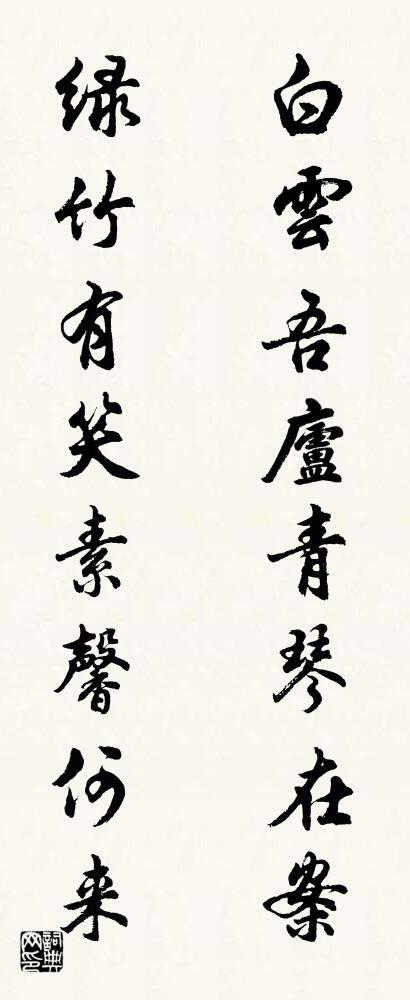 白雲吾廬青琴在案
绿竹有笑素馨何来
詞典网印